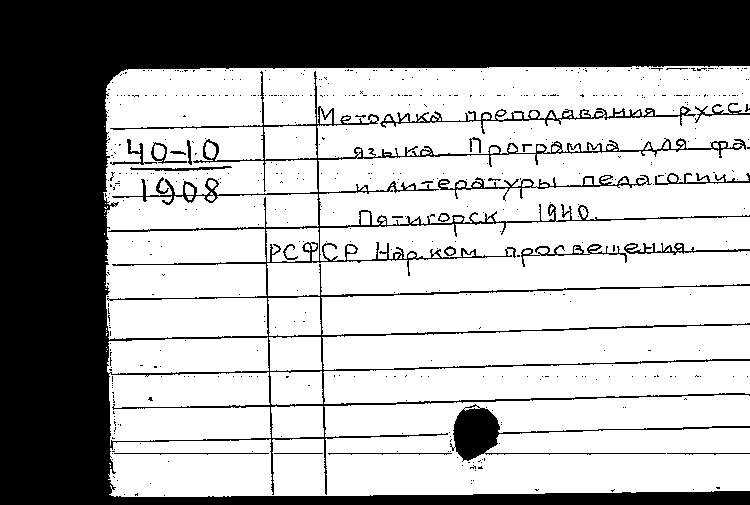 Методика преподавания русск
40-10
языка. Программа для фа
1908
и литературы педагогич.
Пятигорск, 1940.
РСФСР. Нар. ком. просвещения.